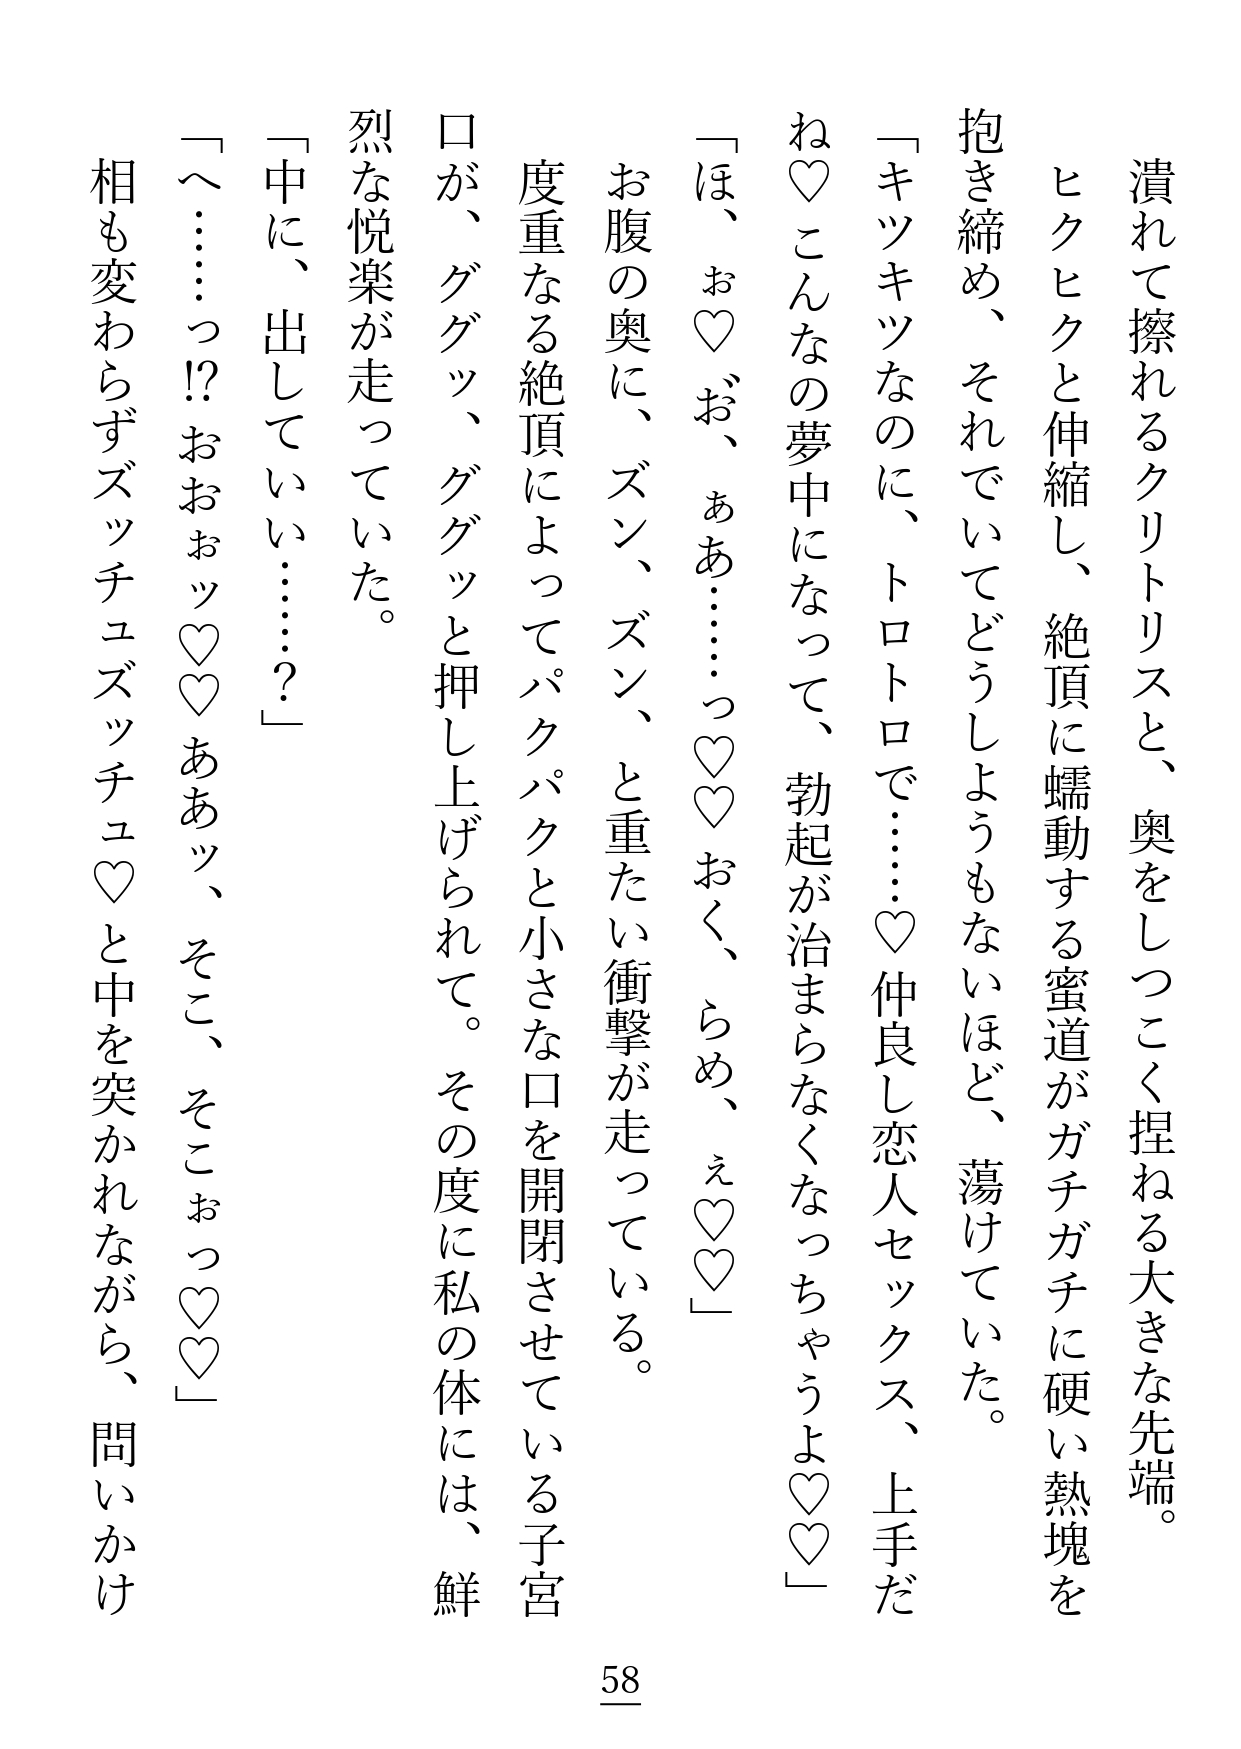 潰れて擦れるクリトリスと、奥をしつこく捏ねる大きな先端。
ヒクヒクと伸縮し、絶頂に蠕動する蜜道がガチガチに硬い熱塊を
抱き締め、それでいてどうしようもないほど、蕩けていた。
「キツキツなのに、トロトロで……♡ 仲良し恋人セックス、上手だ
ね♡ こんなの夢中になって、勃起が治まらなくなっちゃうよ♡♡」
「ほ、ぉ♡ お゛、ぁあ……っ♡♡ おく、らめ、ぇ♡♡」
お腹の奥に、ズン、ズン、と重たい衝撃が走っている。
度重なる絶頂によってパクパクと小さな口を開閉させている子宮
口が、ググッ、ググッと押し上げられて。その度に私の体には、鮮
烈な悦楽が走っていた。
「中に、出していい……？」
「へ……っ!? おおぉッ♡♡ ああッ、そこ、そこぉっ♡♡」
相も変わらずズッチュズッチュ♡と中を突かれながら、問いかけ
58